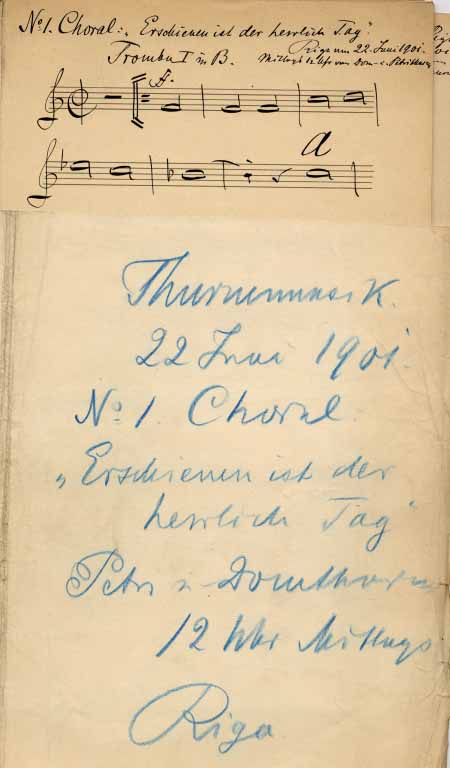 No 1. Choral: „Erschienen ist der herrlich Tag".
Tromba I in B.
Riga am 22. Juni 1901.
Mittags 12 Uhr vom Dom- u.
A
Thurmmusik.
22 Juni 1901.
No 1. Choral.
„Erschienen ist der
herrlich Tag"
Petri u Domthurm
12 Uhr Mittags
Riga.